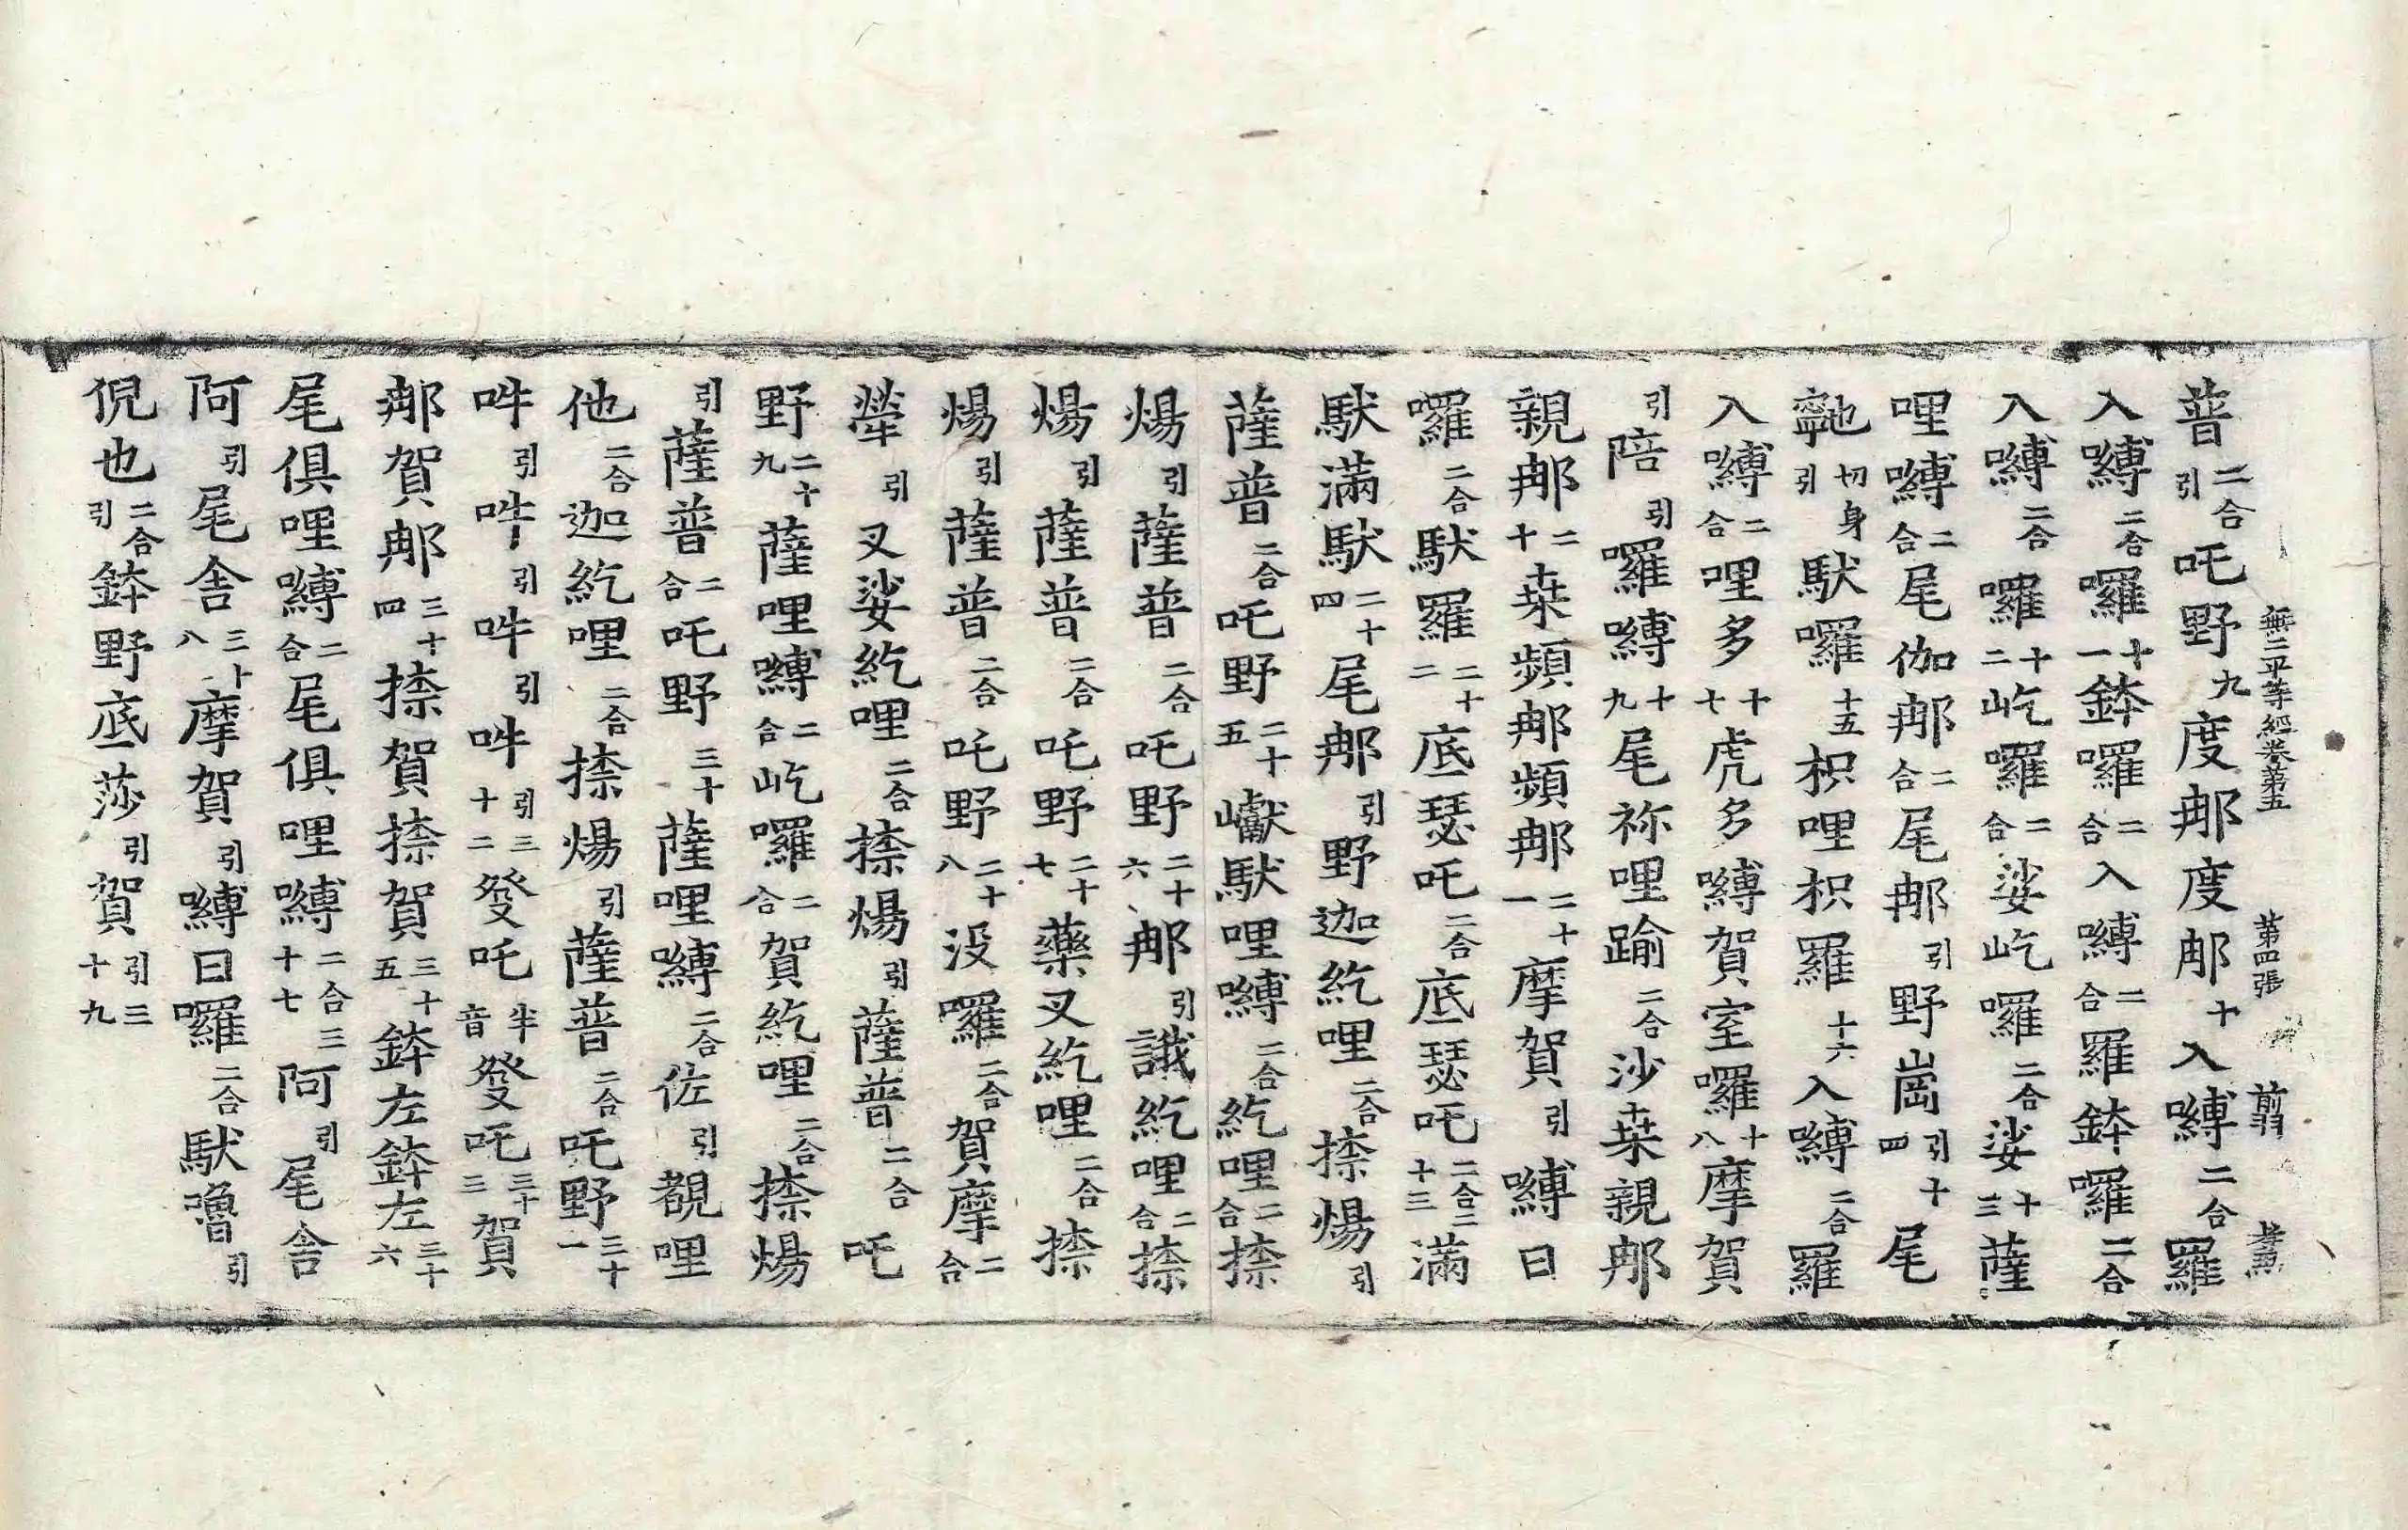 無二平等經卷第五 第四張 翦
普二合引吒野九度𨚗度𨚗十入嚩二合羅
入嚩二合囉十一鉢囉二合入嚩二合羅鉢囉二合
入嚩二合囉十二屹囉二合娑屹囉二合娑十三薩
哩嚩二合尾伽𨚗二合尾𨚗引野崗引十四尾
寧也切身引馱囉十五枳哩枳羅十六入嚩二合羅
入嚩二合哩多十七虎多嚩賀室囉十八摩賀
引陪引囉嚩十九尾祢哩踰二合沙𠦄親𨚗
親𨚗二十𠦄頻𨚗頻𨚗二十一摩賀引嚩日
囉二合馱羅二十二底瑟吒二合底瑟吒二合二十三滿
馱滿馱二十四尾𨚗引野迦紇哩二合捺煬引
薩普二合吒野二十五巘馱哩嚩二合紇哩二合捺
煬引薩普二合吒野二十六𨚗引誐紇哩二合捺
煬引薩普二合吒野二十七藥叉紇哩二合捺
煬引薩普二合吒野二十八沒囉二合賀摩二合
犖引叉娑紇哩二合捺煬引薩普二合吒
野二十九薩哩嚩二合屹囉二合賀紇哩二合捺煬
引薩普二合吒野三十薩哩嚩二合佐引覩哩
他二合迦紇哩二合捺煬引薩普二合吒野三十一
吽引吽引吽引吽引三十二發吒半音發吒三十三賀
𨚗賀𨚗三十四捺賀捺賀三十五鉢左鉢左三十六
尾俱哩嚩二合尾俱哩嚩二合三十七阿引尾舍
阿引尾舍三十八摩賀引嚩日囉二合馱嚕引
倪也二合引鉢野底莎引賀引三十九